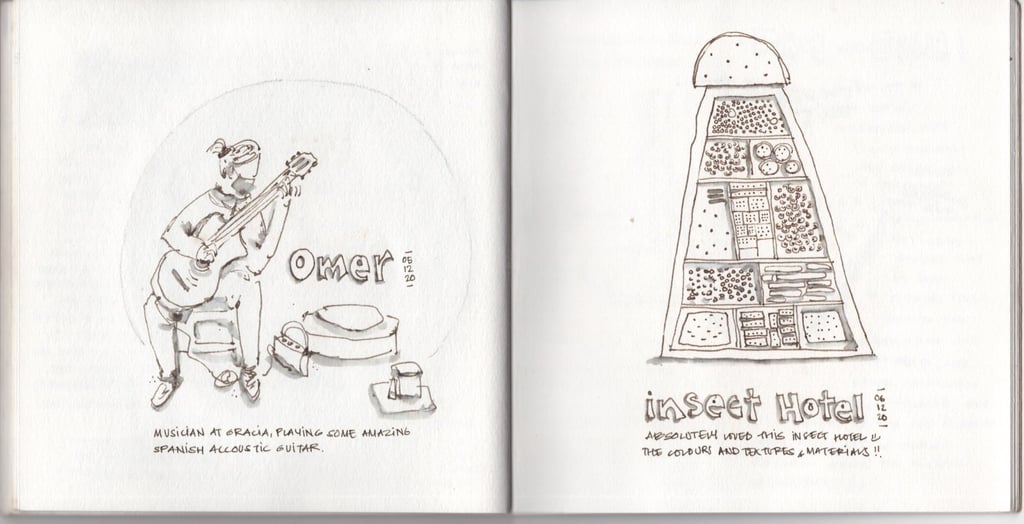 Omer
05
12
20
MUSICIAN AT GRACIA, PLAYING SOME AMAZING
SPANISH ALCOUSTIC GUITAR.
insect Hotel
06
12
20
ABSOLUTELY LOVED THIS INSECT HOTEL !!
THE COLOURS AND TEXTURES & MATERIALS !!